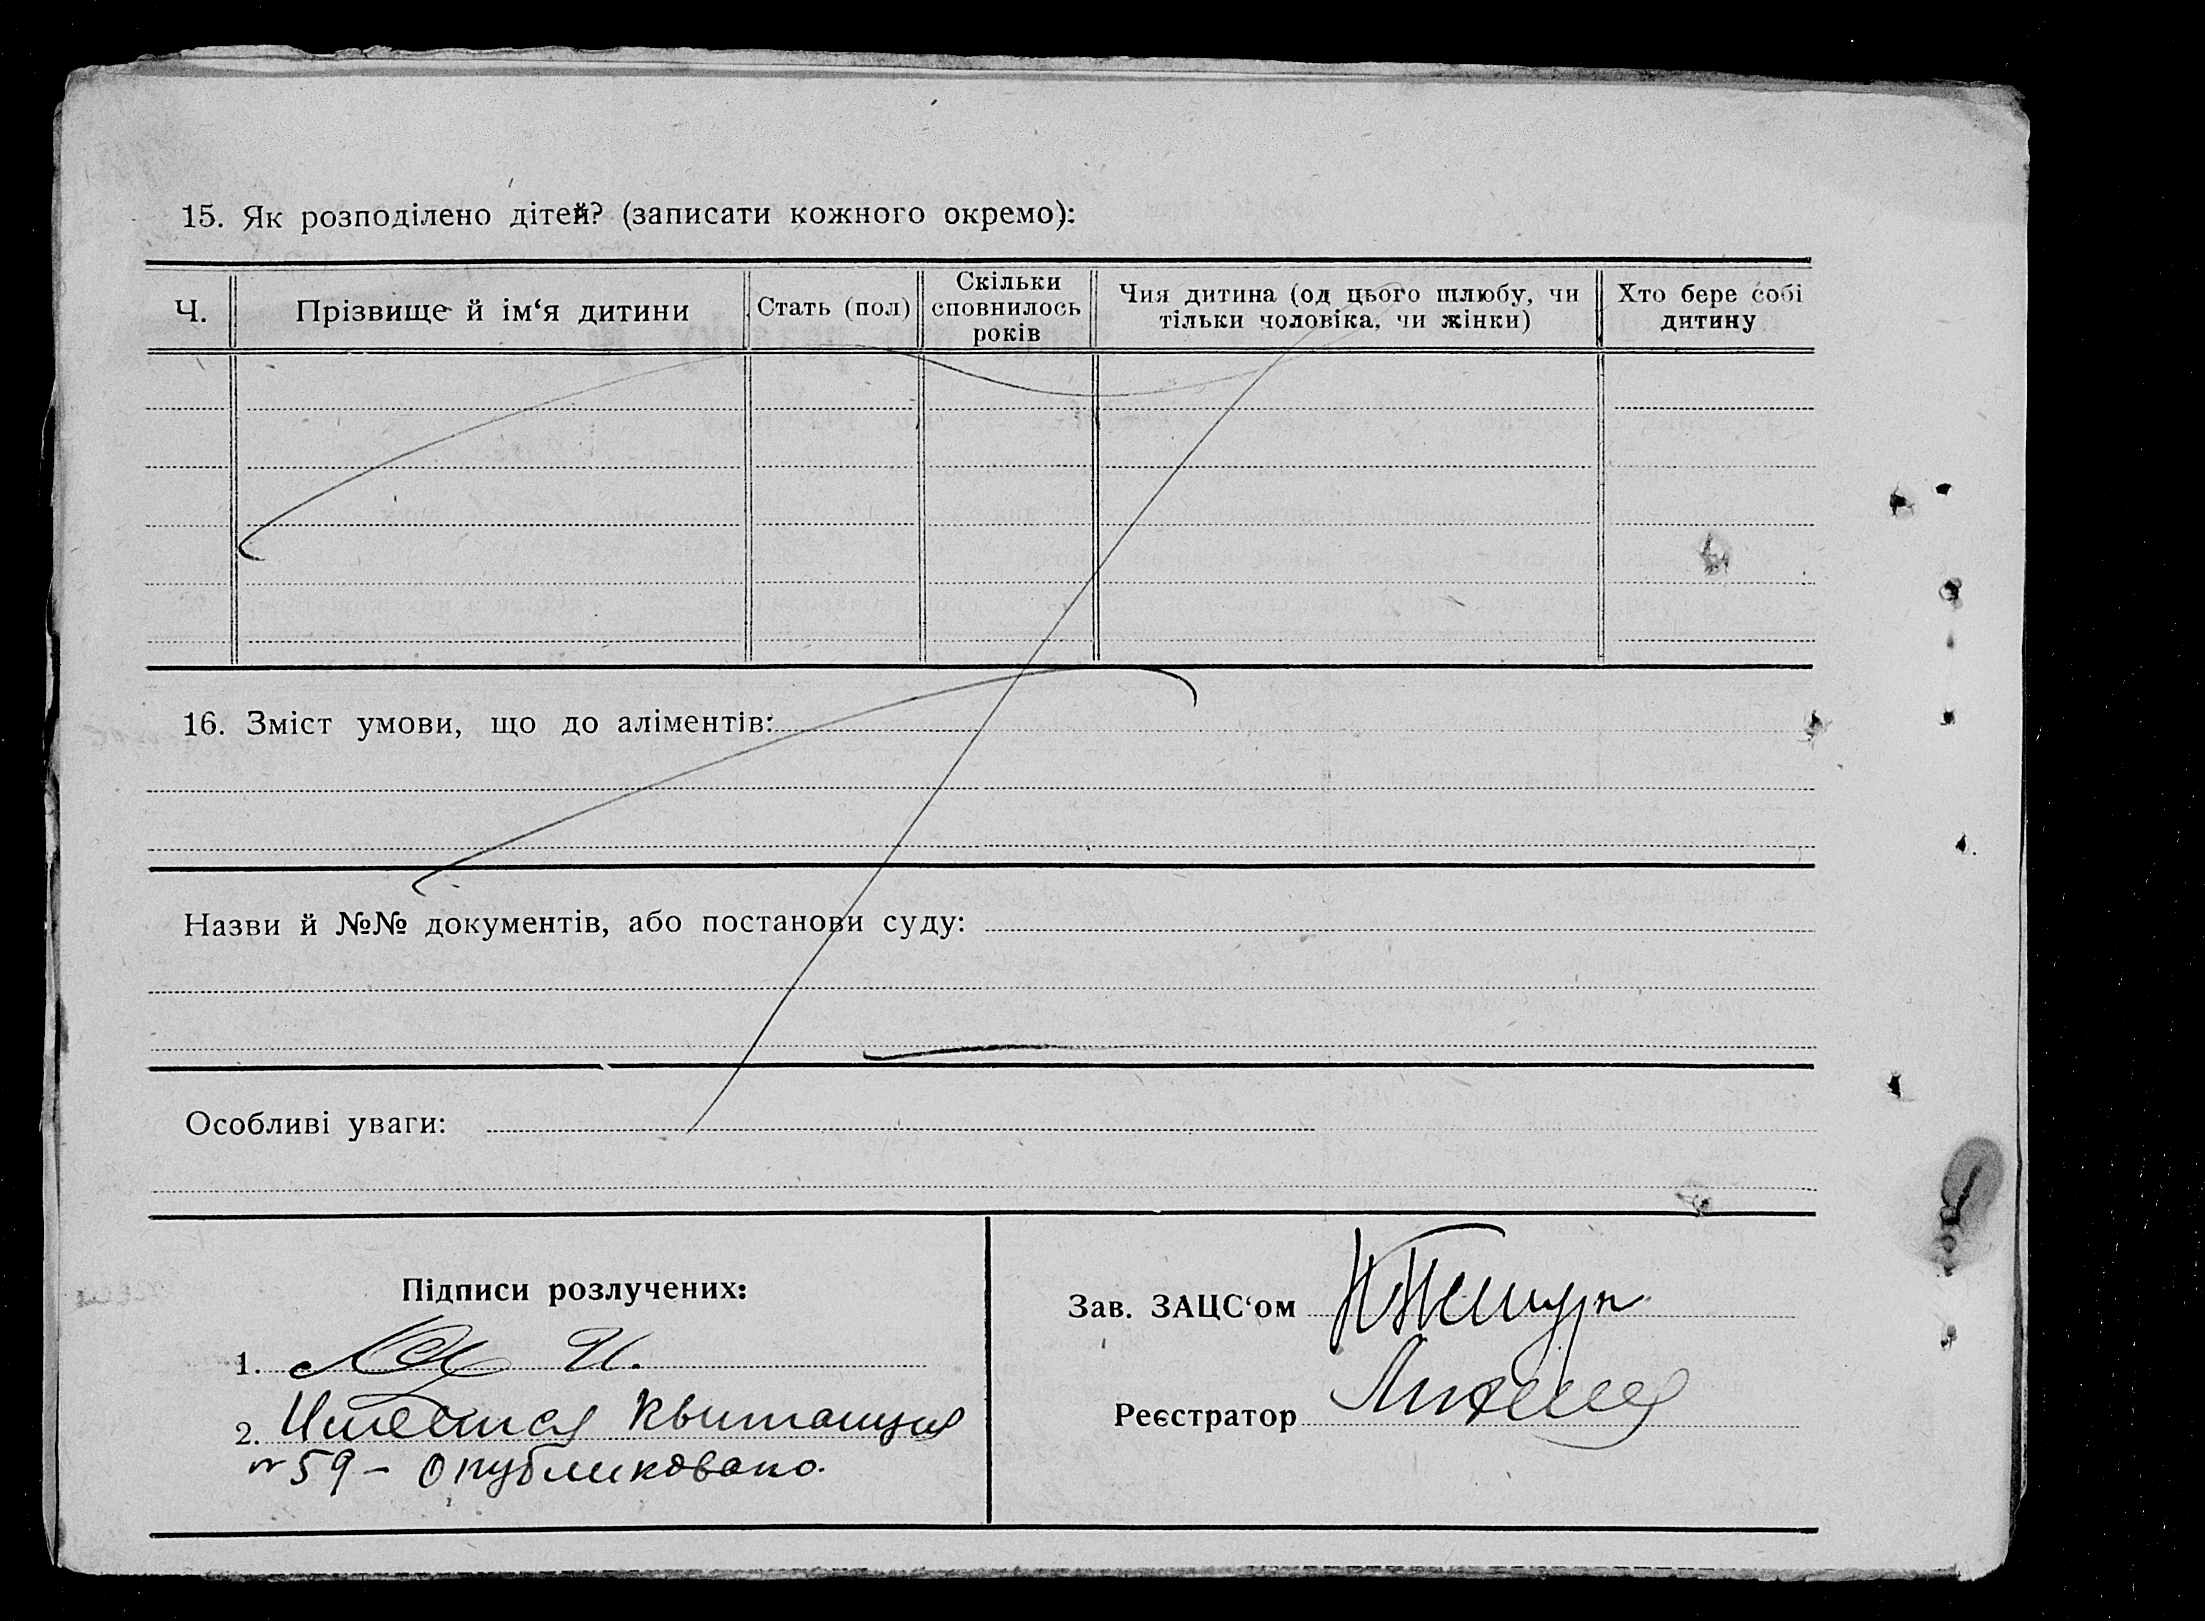 15. Як розподілено дітей? (записати кожного окремо):
Ч.
Прізвище й ім‘я дитини
Стать (пол)
Скільки
сповнилось
років
Чия дитина (од цього шлюбу, чи
тільки чоловіка, чи жінки)
Хто бере собі
дитину
16. Зміст умови, що до аліментів:
Назви й №№ документів, або постанови суду:
Особливі уваги:
Підписи розлучених:
1.
2. Имеется квитанция
№ 59 – опубликовано.
Зав. ЗАЦС‘ом
Реєстратор